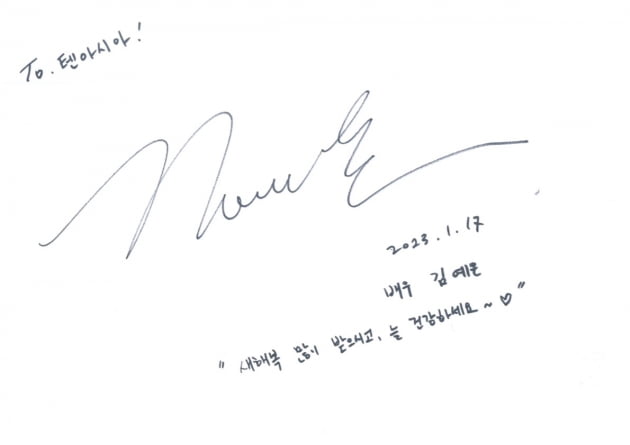 To. 텐아시아!
2023.1.17
배우 김예은
"새해복 많이 받으시고, 늘 건강하세요~♡"